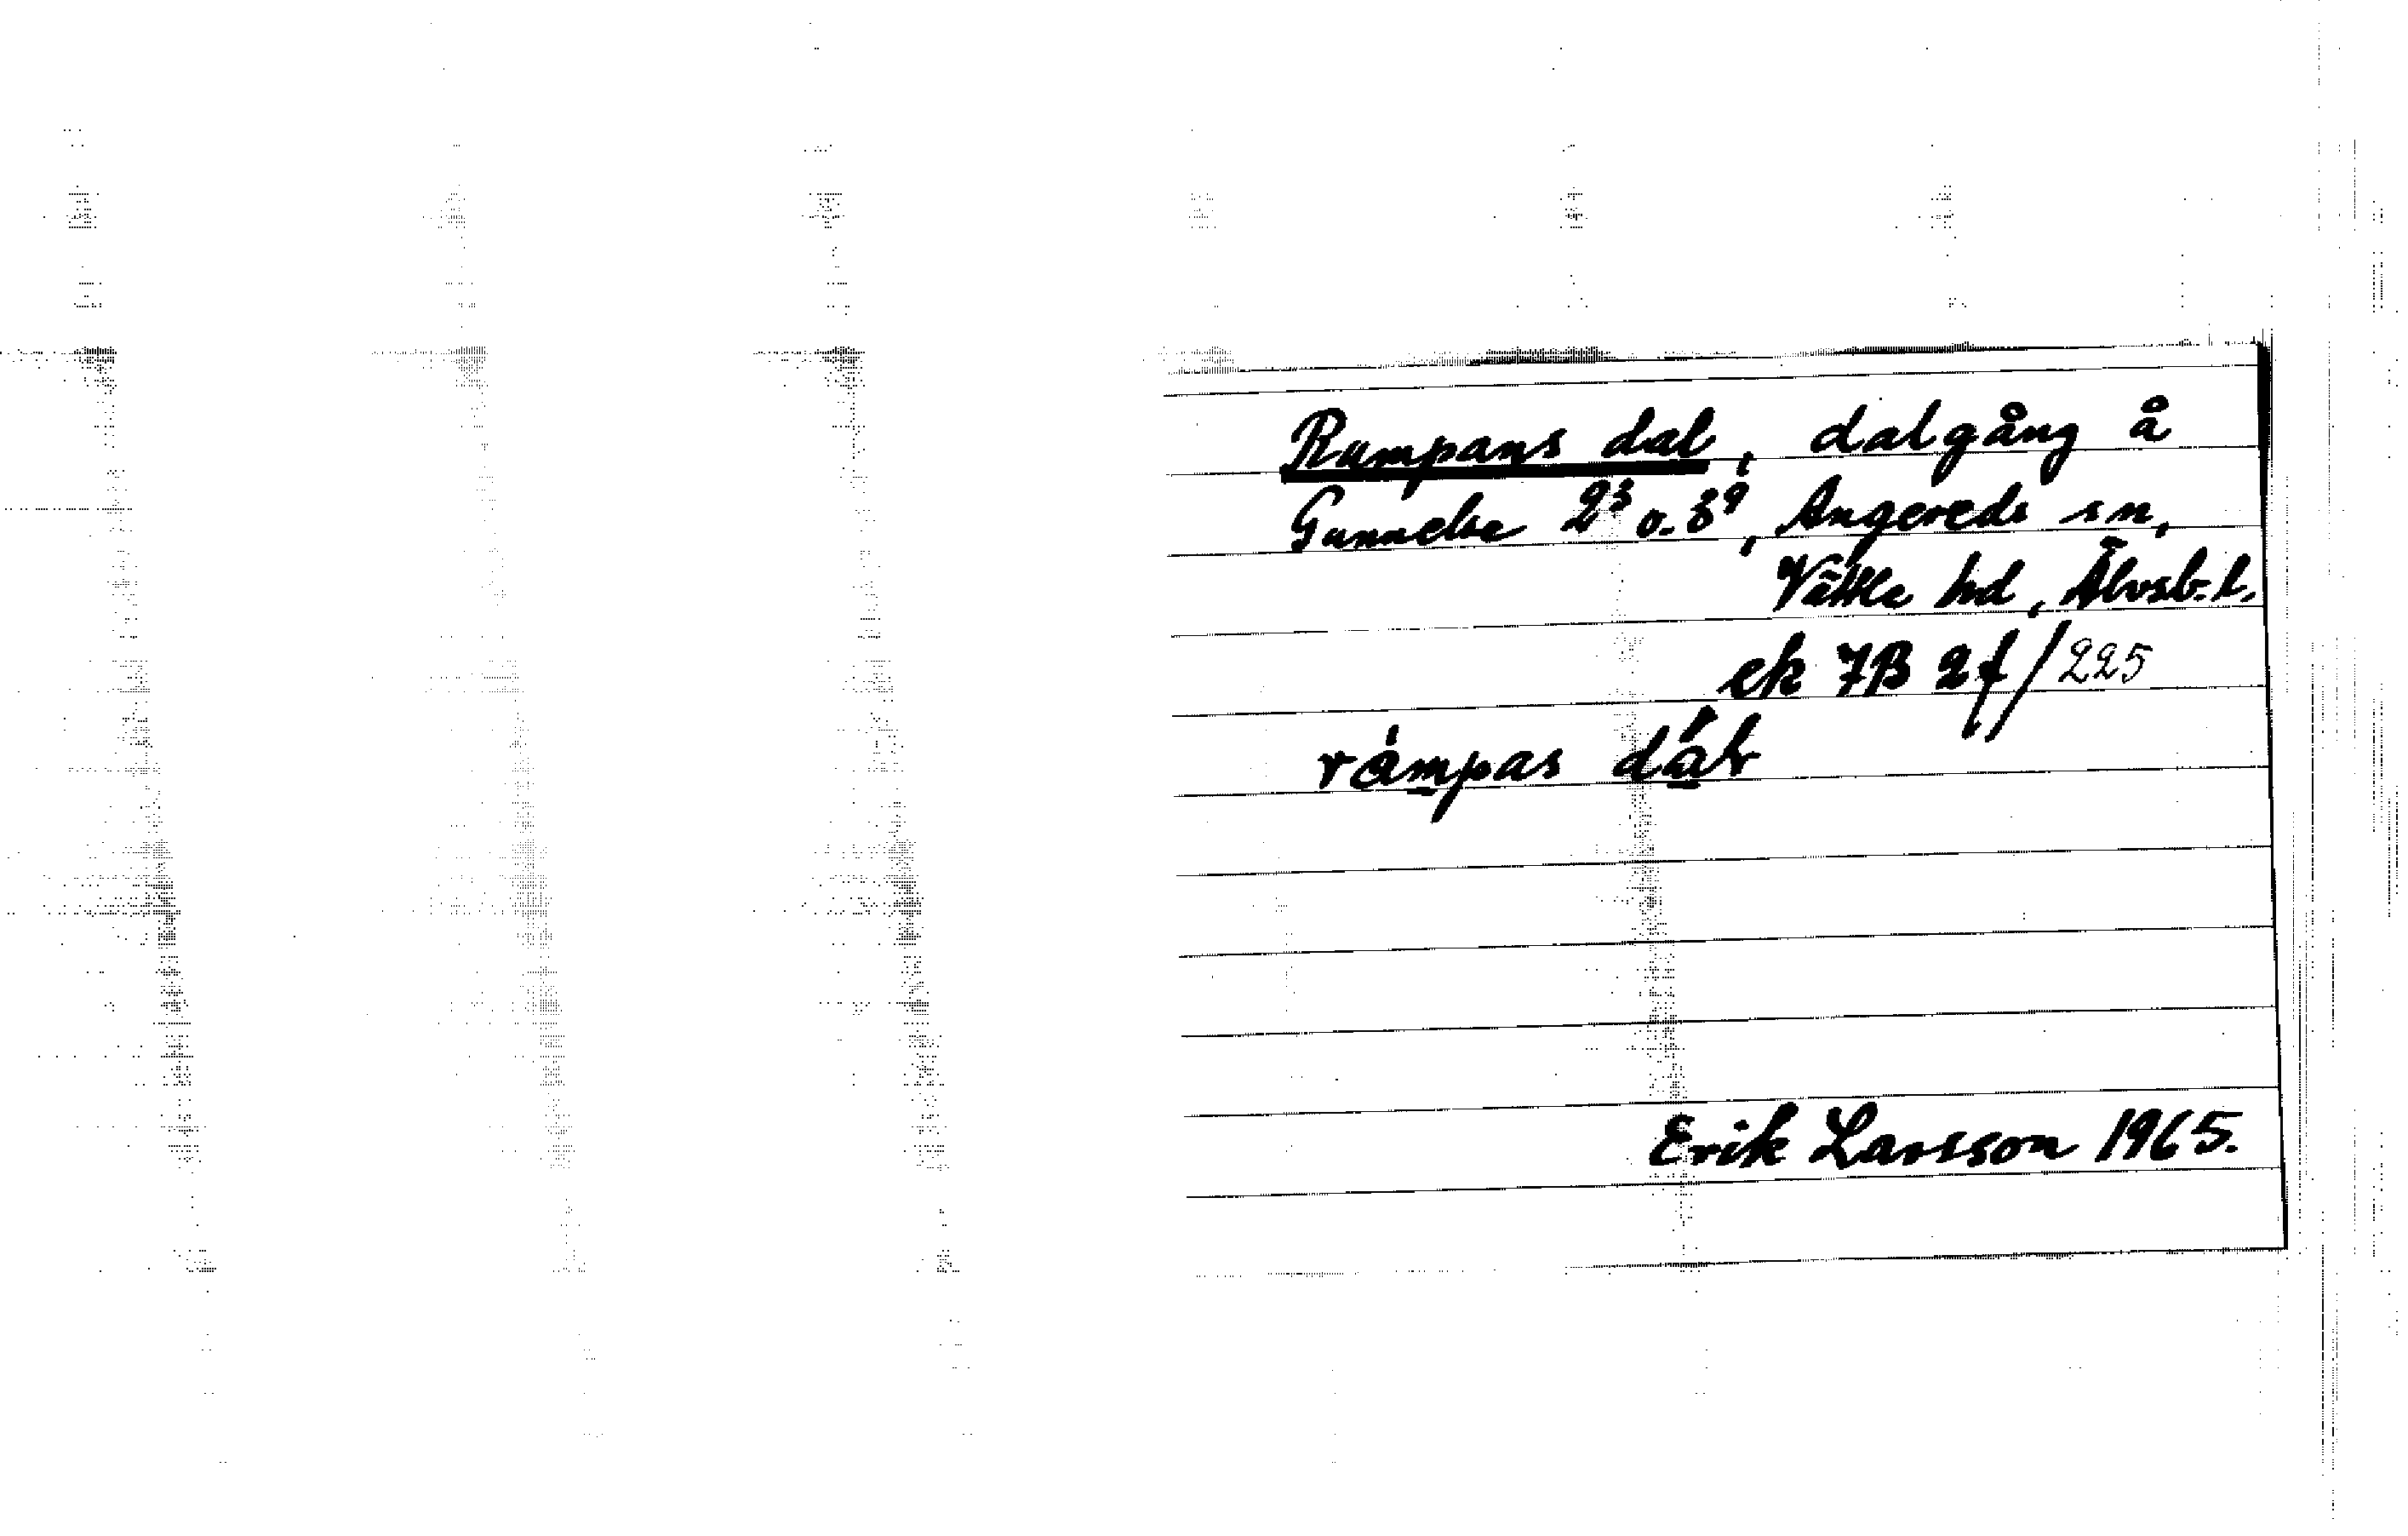 Rumpans dal, dalgång å
Gunnelse 2³ o. 3⁹, Angereds sn,
Vättle hd, Älvsb. l.
ek 7B 2f/225
Erik Larsson 1965.